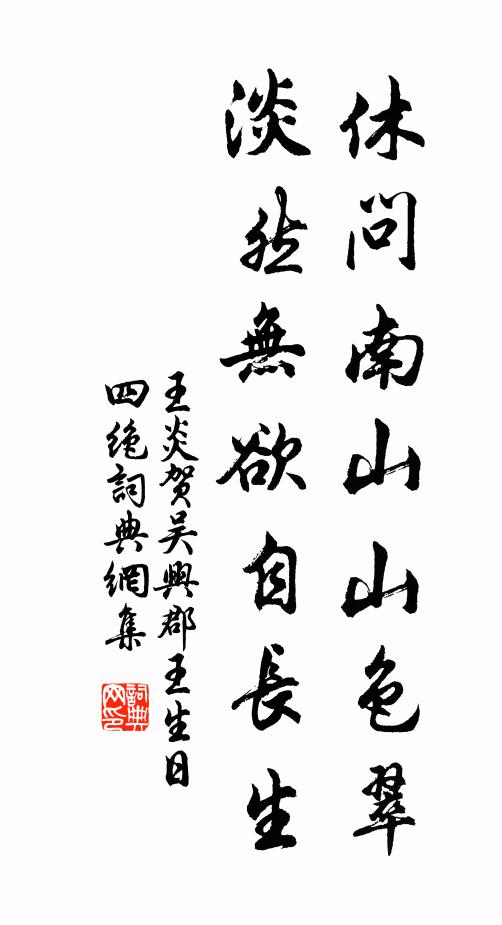 休問南山山色翠
淡然無欲自長生
王炎贺吴興郡王生日
四绝詞典網集
詞典
网印